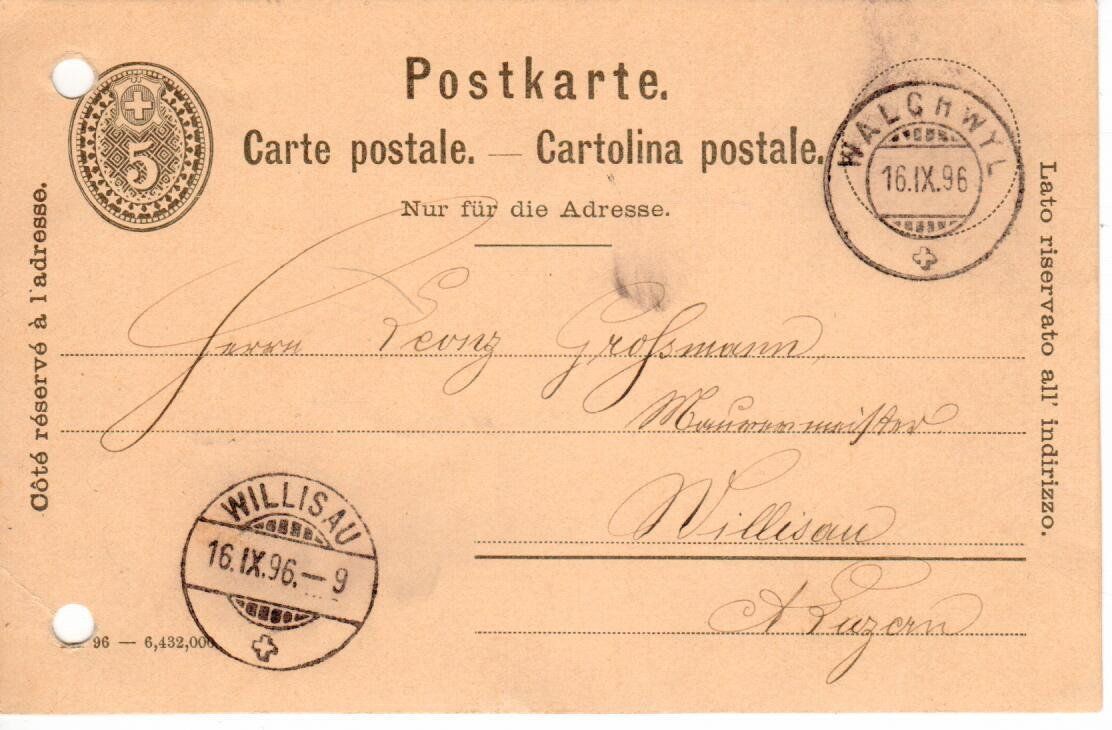 Postkarte.
Carte postale. — Cartolina postale.
Nur für die Adresse.
5
WALCHWYL
16.IX.96
Côté réservé à l'adresse.
Lato riservato all' indirizzo.
Herrn Leonz Großmann,
Maurermeister
Willisau
Luzern
WILLISAU
16.IX.96.—9
96 — 6,432,000